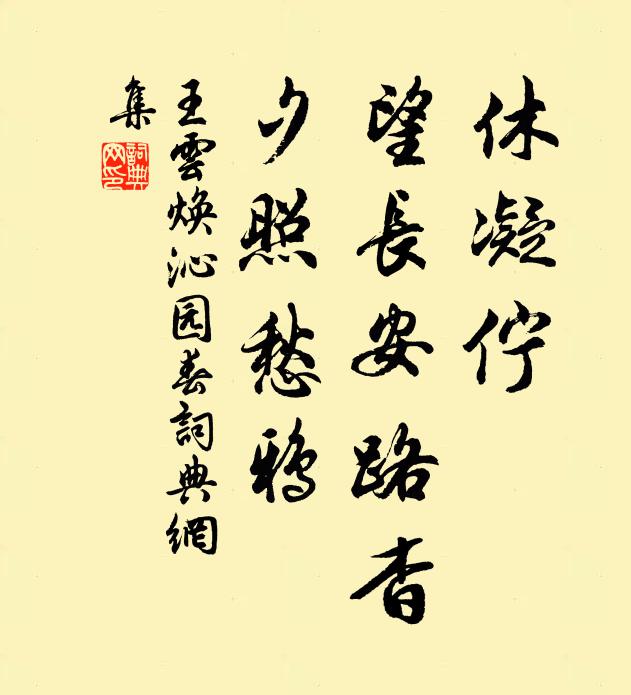 休凝佇
望長安路杳
夕照愁鴉
王雲煥沁园春詞典網
集
詞典网印